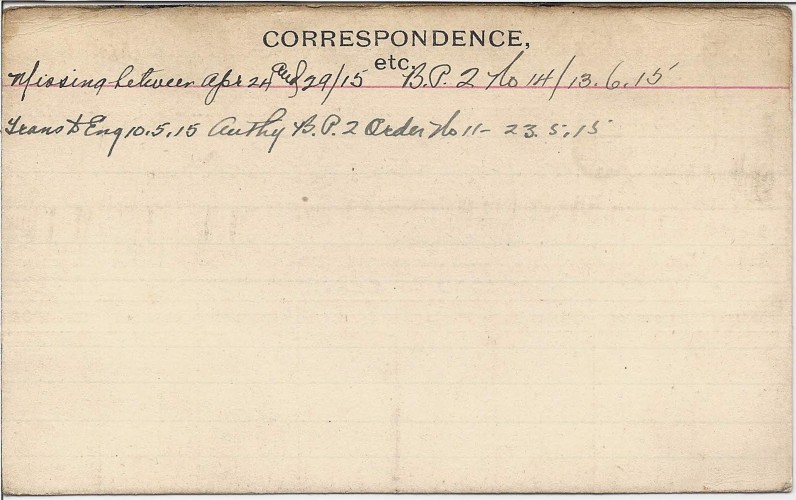 CORRESPONDENCE,
etc.
Missing between Apr 24 and 29/15 B.P. 2 No 14/13.6.15
Trans to Eng 10.5.15 Authy B.P. 2 Order No 11- 23.5.15